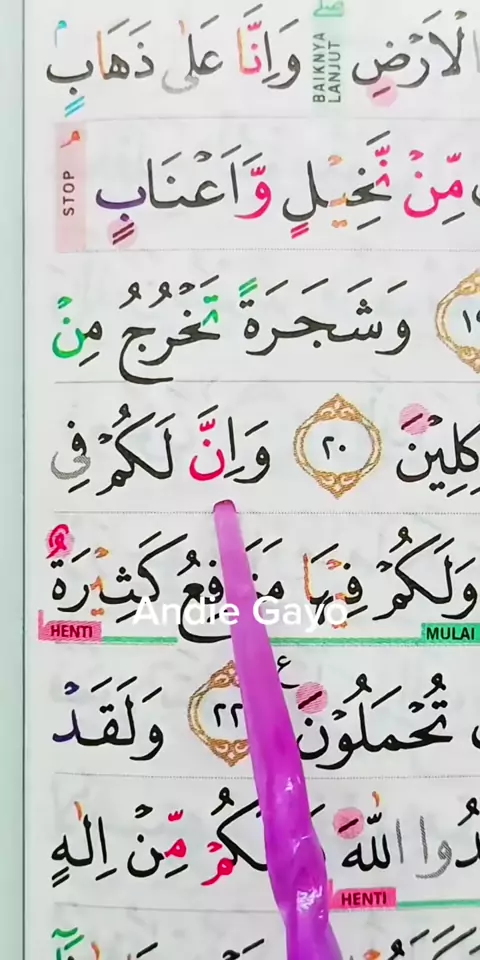 الْاَرْضِ ۖ BAIKNYA LANJUT وَاِنَّا عَلٰى ذَهَابٍ
مِّنْ نَّخِيْلٍ وَّاَعْنَابٍ ۘ STOP
وَشَجَرَةً تَخْرُجُ مِنْ
كِلِيْنَ ٢٠ وَاِنَّ لَكُمْ فِى
وَلَكُمْ فِيْهَا مَنَافِعُ كَثِيْرَةٌ
Andie Gayo
MULAI HENTI
تُحْمَلُوْنَ ٢٢ ع وَلَقَدْ
دُوا اللّٰهَ مِّنْ اِلٰهٍ
HENTI